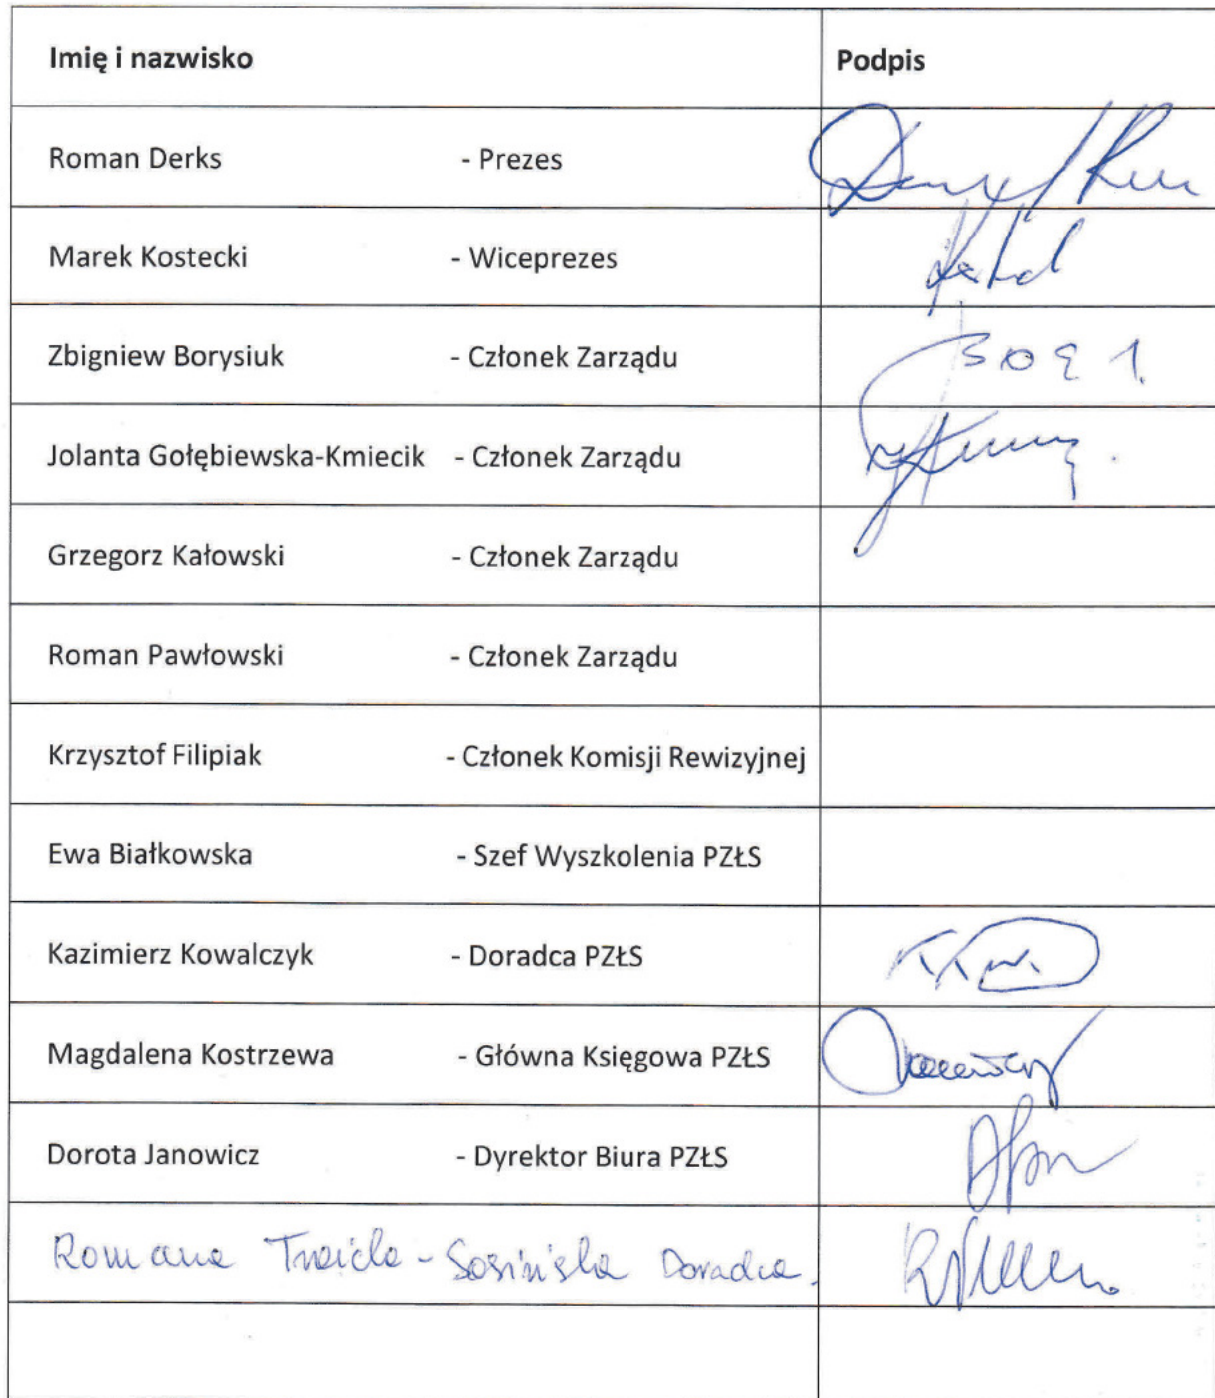 Imię i nazwisko Podpis
Roman Derks - Prezes
Marek Kostecki - Wiceprezes
Zbigniew Borysiuk - Członek Zarządu
Jolanta Gołębiewska-Kmiecik - Członek Zarządu
Grzegorz Kałowski - Członek Zarządu
Roman Pawłowski - Członek Zarządu
Krzysztof Filipiak - Członek Komisji Rewizyjnej
Ewa Białkowska - Szef Wyszkolenia PZŁS
Kazimierz Kowalczyk - Doradca PZŁS
Magdalena Kostrzewa - Główna Księgowa PZŁS
Dorota Janowicz - Dyrektor Biura PZŁS
Romana Doradca